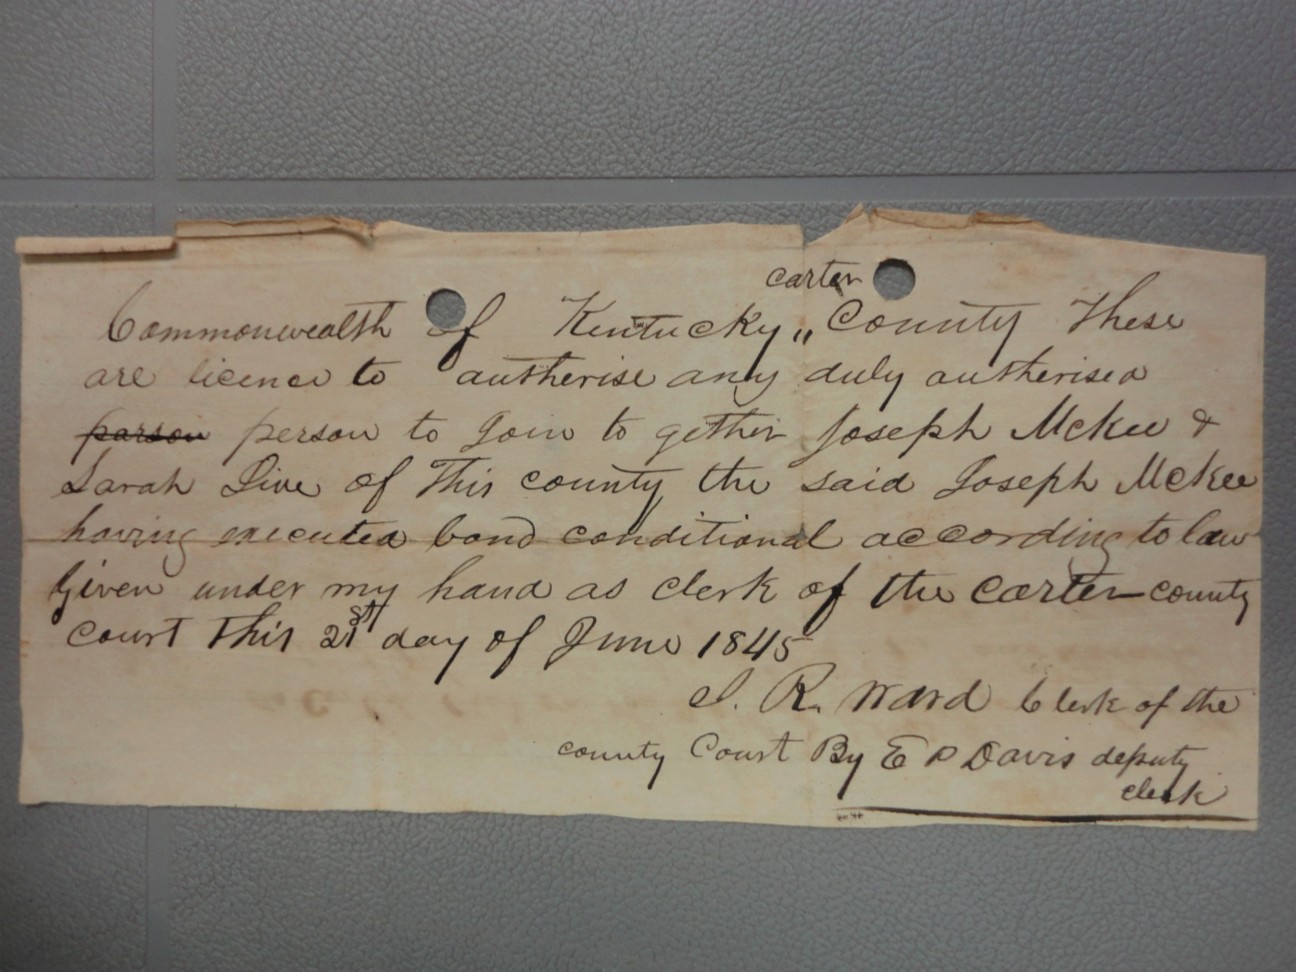 carter
Commonwealth of Kentucky „ County These
are licence to autherise any duly autherised
parson person to Join to gether Joseph McKee &
Sarah Live of This county the said Joseph McKee
having executed bond conditional according to law
Given under my hand as clerk of the Carter county
court This 21st day of June 1845
J. R. Ward Clerk of the
county Court By E P Davis deputy
clerk